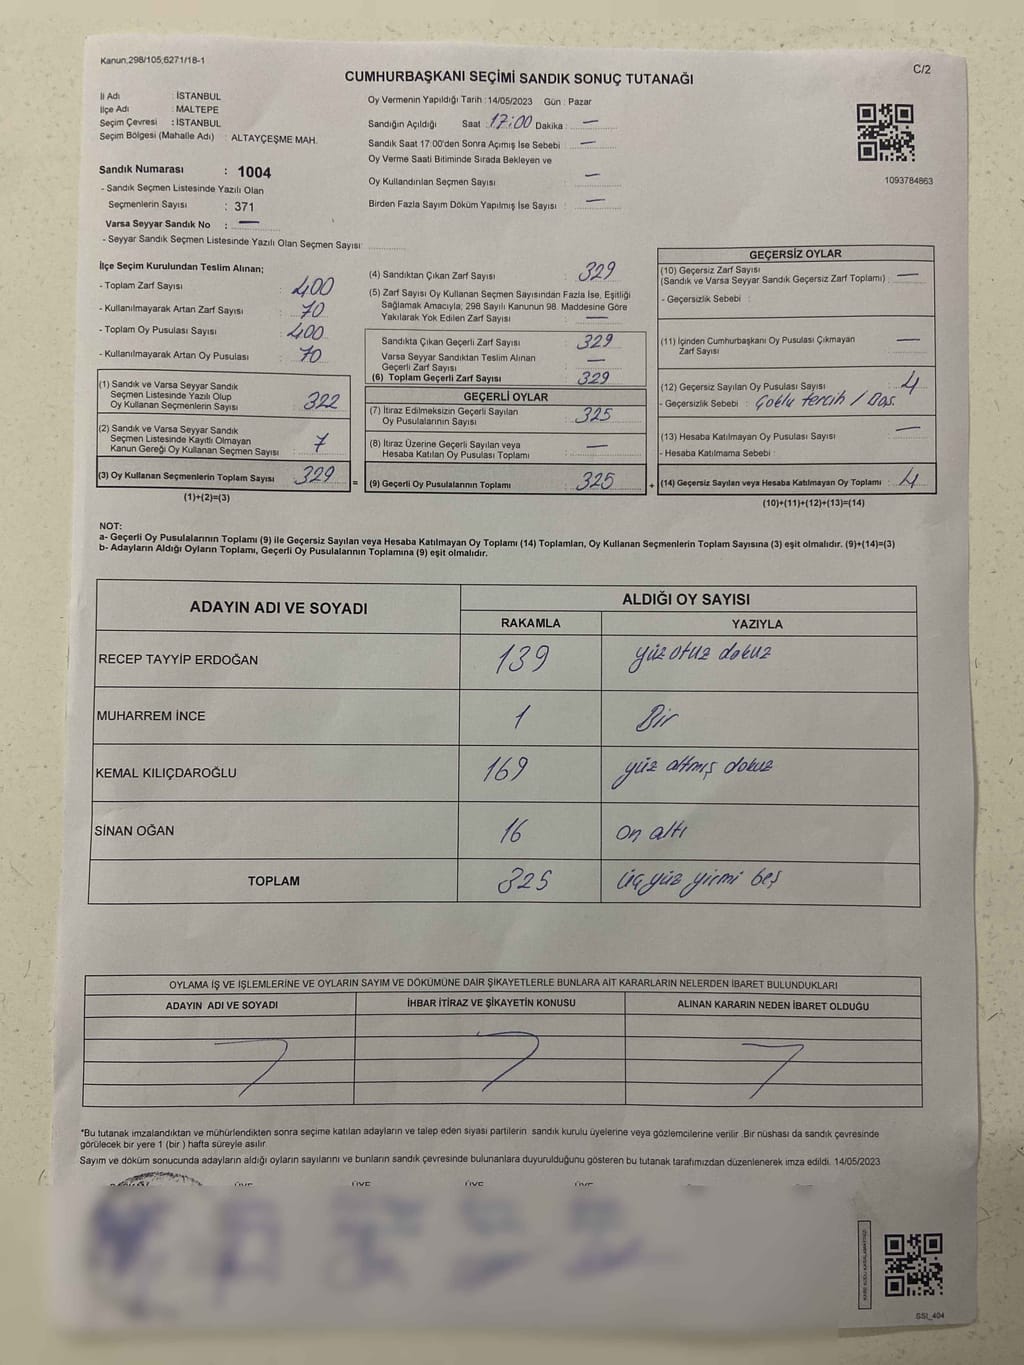 Kanun,298/105,6271/18-1
C/2
CUMHURBAŞKANI SEÇİMİ SANDIK SONUÇ TUTANAĞI
İl Adı : İSTANBUL
İlçe Adı : MALTEPE
Seçim Çevresi : İSTANBUL
Seçim Bölgesi (Mahalle Adı) : ALTAYÇEŞME MAH.
Oy Vermenin Yapıldığı Tarih : 14/05/2023 Gün : Pazar
Sandığın Açıldığı Saat : 17:00 Dakika : —
Sandık Saat 17:00'den Sonra Açımış İse Sebebi : —
Oy Verme Saati Bitiminde Sırada Bekleyen ve
Oy Kullandırılan Seçmen Sayısı : —
Birden Fazla Sayım Döküm Yapılmış İse Sayısı : —
1093784863
Sandık Numarası : 1004
- Sandık Seçmen Listesinde Yazılı Olan
Seçmenlerin Sayısı : 371
Varsa Seyyar Sandık No : —
- Seyyar Sandık Seçmen Listesinde Yazılı Olan Seçmen Sayısı:
İlçe Seçim Kurulundan Teslim Alınan;
- Toplam Zarf Sayısı : 400
- Kullanılmayarak Artan Zarf Sayısı : 70
- Toplam Oy Pusulası Sayısı : 400
- Kullanılmayarak Artan Oy Pusulası : 70
(1) Sandık ve Varsa Seyyar Sandık
Seçmen Listesinde Yazılı Olup
Oy Kullanan Seçmenlerin Sayısı : 322
(2) Sandık ve Varsa Seyyar Sandık
Seçmen Listesinde Kayıtlı Olmayan
Kanun Gereği Oy Kullanan Seçmen Sayısı : 7
(3) Oy Kullanan Seçmenlerin Toplam Sayısı : 329
(1)+(2)=(3)
=
(4) Sandıktan Çıkan Zarf Sayısı : 329
(5) Zarf Sayısı Oy Kullanan Seçmen Sayısından Fazla İse, Eşitliği
Sağlamak Amacıyla, 298 Sayılı Kanunun 98. Maddesine Göre
Yakılarak Yok Edilen Zarf Sayısı : —
Sandıkta Çıkan Geçerli Zarf Sayısı : 329
Varsa Seyyar Sandıktan Teslim Alınan
Geçerli Zarf Sayısı : —
(6) Toplam Geçerli Zarf Sayısı : 329
GEÇERLİ OYLAR
(7) İtiraz Edilmeksizin Geçerli Sayılan
Oy Pusulalarının Sayısı : 325
(8) İtiraz Üzerine Geçerli Sayılan veya
Hesaba Katılan Oy Pusulası Toplamı : —
(9) Geçerli Oy Pusulalarının Toplamı : 325
+
GEÇERSİZ OYLAR
(10) Geçersiz Zarf Sayısı
(Sandık ve Varsa Seyyar Sandık Geçersiz Zarf Toplamı) : —
- Geçersizlik Sebebi :
(11) İçinden Cumhurbaşkanı Oy Pusulası Çıkmayan
Zarf Sayısı : —
(12) Geçersiz Sayılan Oy Pusulası Sayısı : 4
- Geçersizlik Sebebi : Çoklu tercih / Boş.
(13) Hesaba Katılmayan Oy Pusulası Sayısı : —
- Hesaba Katılmama Sebebi :
(14) Geçersiz Sayılan veya Hesaba Katılmayan Oy Toplamı : 4
(10)+(11)+(12)+(13)=(14)
NOT:
a- Geçerli Oy Pusulalarının Toplamı (9) ile Geçersiz Sayılan veya Hesaba Katılmayan Oy Toplamı (14) Toplamları, Oy Kullanan Seçmenlerin Toplam Sayısına (3) eşit olmalıdır. (9)+(14)=(3)
b- Adayların Aldığı Oyların Toplamı, Geçerli Oy Pusulalarının Toplamına (9) eşit olmalıdır.
ADAYIN ADI VE SOYADI
ALDIĞI OY SAYISI
RAKAMLA YAZIYLA
RECEP TAYYİP ERDOĞAN 139 yüz otuz dokuz
MUHARREM İNCE 1 Bir
KEMAL KILIÇDAROĞLU 169 yüz altmış dokuz
SİNAN OĞAN 16 on altı
TOPLAM 325 üçyüz yirmi beş
OYLAMA İŞ VE İŞLEMLERİNE VE OYLARIN SAYIM VE DÖKÜMÜNE DAİR ŞİKAYETLERLE BUNLARA AİT KARARLARIN NELERDEN İBARET BULUNDUKLARI
ADAYIN ADI VE SOYADI İHBAR İTİRAZ VE ŞİKAYETİN KONUSU ALINAN KARARIN NEDEN İBARET OLDUĞU
*Bu tutanak imzalandıktan ve mühürlendikten sonra seçime katılan adayların ve talep eden siyasi partilerin sandık kurulu üyelerine veya gözlemcilerine verilir .Bir nüshası da sandık çevresinde
görülecek bir yere 1 (bir ) hafta süreyle asılır.
Sayım ve döküm sonucunda adayların aldığı oyların sayılarını ve bunların sandık çevresinde bulunanlara duyurulduğunu gösteren bu tutanak tarafımızdan düzenlenerek imza edildi. 14/05/2023
ÜYE ÜYE ÜYE ÜYE
SSI_404